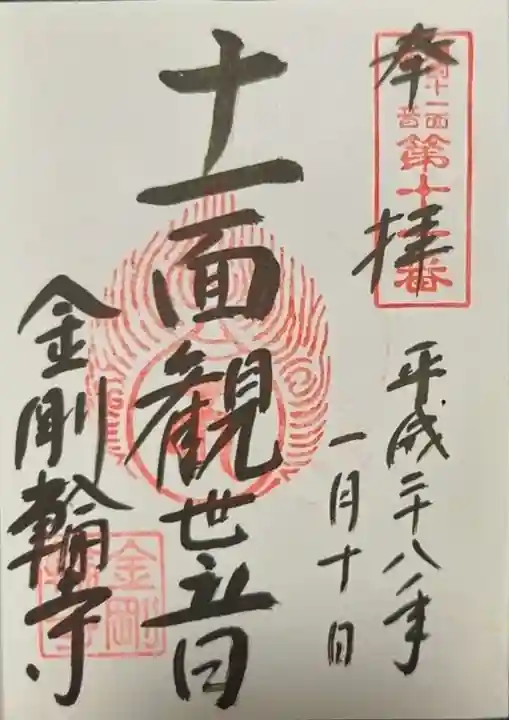 奉拝
十一面
音
第十
番
平成二十八年
一月十日
十一面観世音
金剛輪寺
金剛